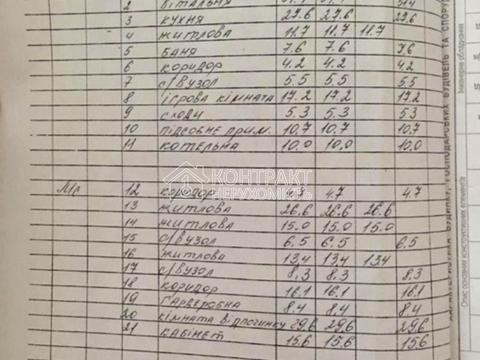 2 вітальня
3 кухня 23.6 23.6 23.6
4 житлова 11.7 11.7 11.7
5 баня 7.6 7.6 7.6
6 коридор 4.2 4.2 4.2
7 с/вузол 5.5 5.5 5.5
8 ігрова кімната 17.2 17.2 17.2
9 сходи 5.3 5.3 5.3
10 підсобне прим. 10.7 10.7 10.7
11 котельна 10.0 10.0 10.0
КОНТРАКТ
НЕРУХОМІСТЬ
12 коридор 4.7 4.7
13 житлова 26.6 26.6 26.6
14 житлова 15.0 15.0 15.0
15 с/вузол 6.5 6.5 6.5
16 житлова 13.4 13.4 13.4
17 с/вузол 8.3 8.3 8.3
18 коридор 16.1 16.1 16.1
19 гарверобна 8.4 8.4 8.4
20 кімната відпочинку 29.6 29.6 29.6
21 кабінет 15.6 15.6 15.6
ГОСПОДАРСЬКИХ БУДІВЕЛЬ ТА СПОРУ
Опис основних конструктивних елементів
Інженерне обладнання